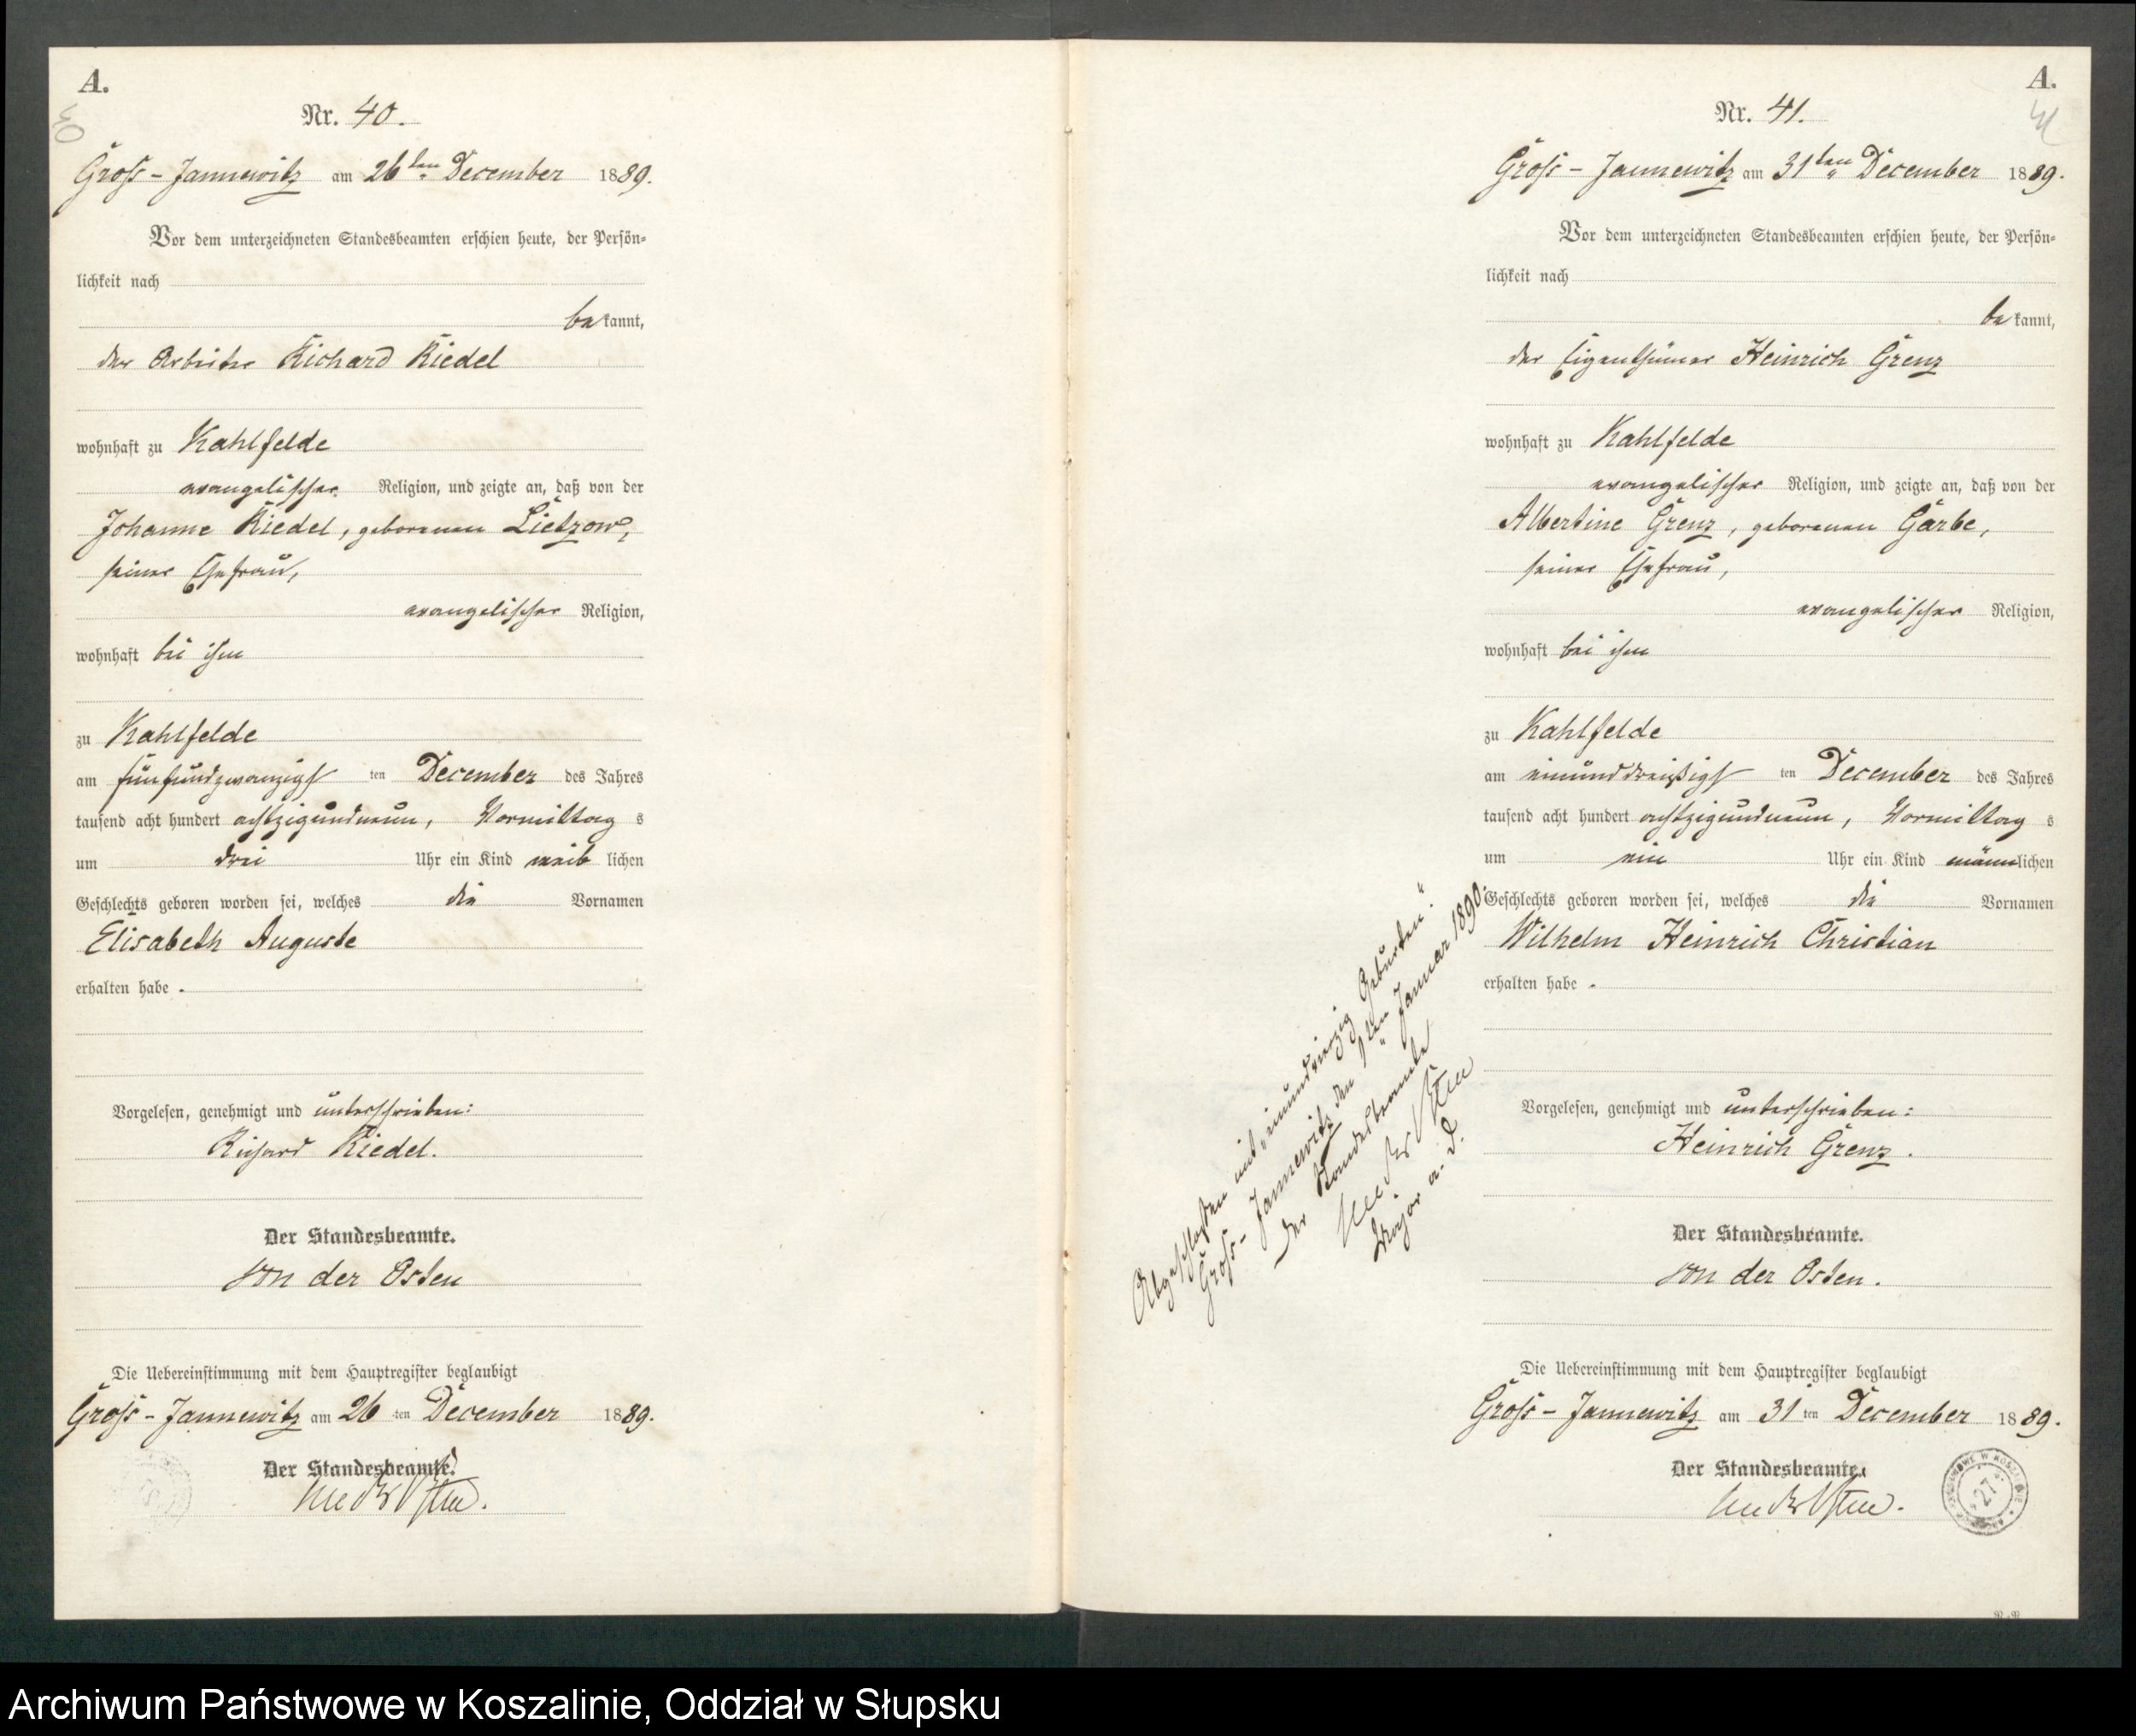 A.
40
Nr. 40.
Gross-Jannewitz am 26ten December 1889.
Vor dem unterzeichneten Standesbeamten erschien heute, der Persön-
lichkeit nach
bekannt,
der Arbeiter Richard Riedel
wohnhaft zu Kahlfelde
evangelischer Religion, und zeigte an, daß von der
Johanne Riedel, geborenen Lietzow,
seiner Ehefrau,
evangelischer Religion,
wohnhaft bei ihm
zu Kahlfelde
am fünfundzwanzigsten December des Jahres
tausend acht hundert achtzigundneun, Vormittags
um drei Uhr ein Kind weiblichen
Geschlechts geboren worden sei, welches die Vornamen
Elisabeth Auguste
erhalten habe.
Vorgelesen, genehmigt und unterschrieben:
Richard Riedel.
Der Standesbeamte.
von der Osten
Die Uebereinstimmung mit dem Hauptregister beglaubigt
Gross-Jannewitz am 26ten December 1889.
Der Standesbeamte.
von der Osten.
A.
41
Nr. 41.
Gross-Jannewitz am 31ten December 1889.
Vor dem unterzeichneten Standesbeamten erschien heute, der Persön-
lichkeit nach
bekannt,
der Eigenthümer Heinrich Grenz
wohnhaft zu Kahlfelde
evangelischer Religion, und zeigte an, daß von der
Albertine Grenz, geborenen Garbe,
seiner Ehefrau,
evangelischer Religion,
wohnhaft bei ihm
zu Kahlfelde
am einunddreißigsten December des Jahres
tausend acht hundert achtzigundneun, Vormittags
um ein Uhr ein Kind männlichen
Geschlechts geboren worden sei, welches die Vornamen
Wilhelm Heinrich Christian
erhalten habe.
Vorgelesen, genehmigt und unterschrieben:
Heinrich Grenz.
Der Standesbeamte.
von der Osten.
Die Uebereinstimmung mit dem Hauptregister beglaubigt
Gross-Jannewitz am 31ten December 1889.
Der Standesbeamte.
von der Osten.
Abgeschlossen mit „einundvierzig Geburten."
Gross-Jannewitz den 1ten Januar 1890.
Der Standesbeamte
von der Osten
Major a. D.
27
Archiwum Państwowe w Koszalinie, Oddział w Słupsku